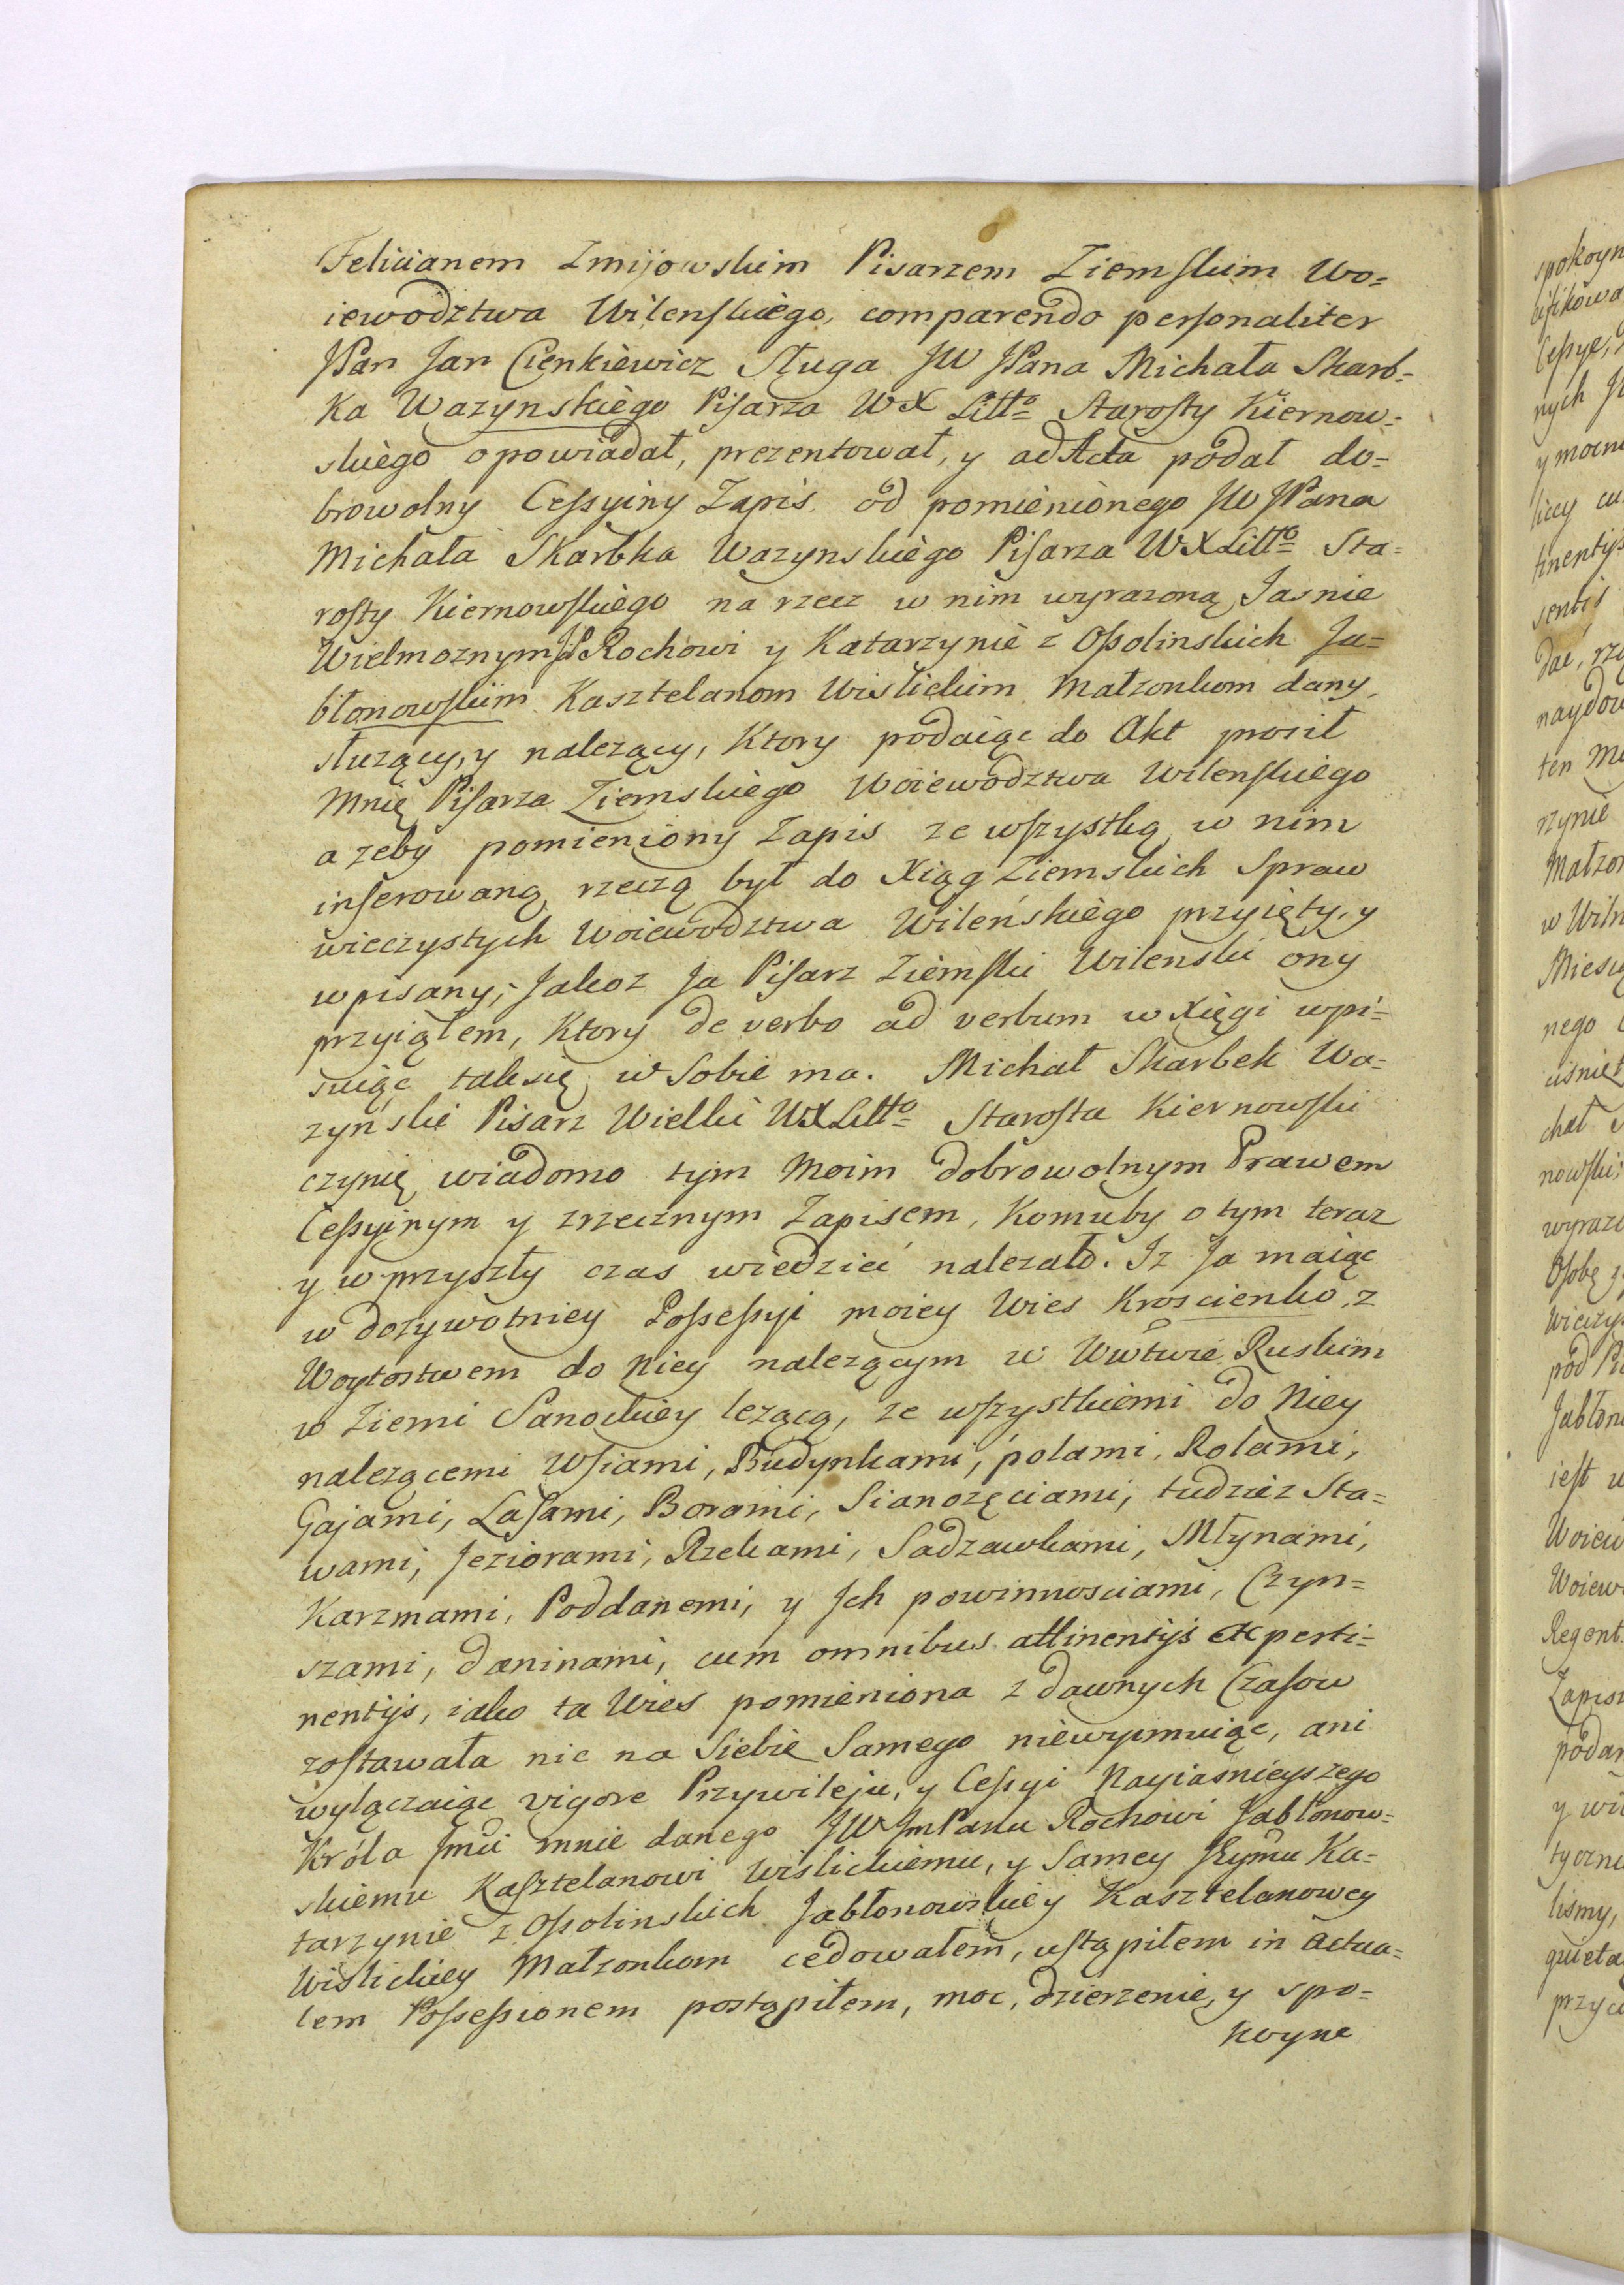 Felicianem Zmijowskim Pisarzem Ziemskim Wo=
iewodztwa Wilenskiego, comparendo personaliter
JPan Jan Cienkiewicz Sługa JW JPana Michała Skarb=
ka Wazynskiego Pisarza WX Litto Starosty Kiernow=
skiego opowiadał, prezentował, y ad Acta podał do=
browolny Cessyiny Zapis od pomienionego JW JPana
Michała Skarbka Wazynskiego Pisarza WX Litto Sta=
rosty Kiernowskiego na rzecz w nim wyrazoną Jasnie
Wielmoznym JP Rochowi y Katarzynie z Ossolinskich Ja=
błonowskim Kasztelanom Wislickim Małzonkom dany,
słuzący, y nalezący, Ktory podaiąc do Akt prosił
Mnię Pisarza Ziemskiego Woiewodztwa Wilenskiego
azeby pomieniony Zapis ze wszystką w nim
inserowaną rzeczą był do Xiąg Ziemskich Spraw
wieczystych Woiewodztwa Wileńskiego przyięty, y
wpisany; Jakoz Ja Pisarz Ziemski Wilenski ony
przyiąłem, Ktory de verbo ad verbum w Xięgi wpi=
suiąc tak się w Sobie ma. Michał Skarbek Wa=
zyński Pisarz Wielki WX Litto Starosta Kiernowski
czynię wiadomo tym Moim dobrowolnym Prawem
Cessyinym y zrzecznym Zapisem, Komuby o tym teraz
y w przyszły czas wiedzieć nalezało. Iz Ja maiąc
w dozywotniey Possessyi moiey Wies Kroscienko, z
Woytostwem do Niey nalezącym w Wwtwie Ruskim
w Ziemi Sanockiey lezącą, ze wszystkiemi do Niey
nalezącemi Wsiami, Budynkami, polami, Rolami,
Gajami, Lasami, Borami, Sianozęciami, tudziez Sta=
wami, Jeziorami, Rzekami, Sadzawkami, Młynami,
Karzmami, Poddanemi, y Jch powinnosciami, Czyn=
szami, daninami, cum omnibus attinentijs et perti=
nentijs, iako ta Wies pomieniona z dawnych Czasow
zostawała nic na Siebie Samego niewyimuiąc, ani
wyłączaiąc vigore Przywileju, y Cessyi Nayiasnieyszego
Króla Jmci mnie danego JW JmPanu Rochowi Jabłonow=
skiemu Kasztelanowi Wislickiemu, y Samey Ka=
tarzynie z Ossolinskich Jabłonowskiey Kasztelanowey
Wislickiey Małzonkom cedowałem, ustąpiłem in actua=
lem Possessionem postąpiłem, moc, dzierzenie, y spo=
koyne